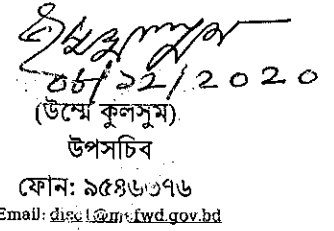 ০৮/১২/২০২০
(উম্মে কুলসুম)
উপসচিব
ফোন: ৯৫৪৬৩৭৬
Email: disc1@mefwd.gov.bd